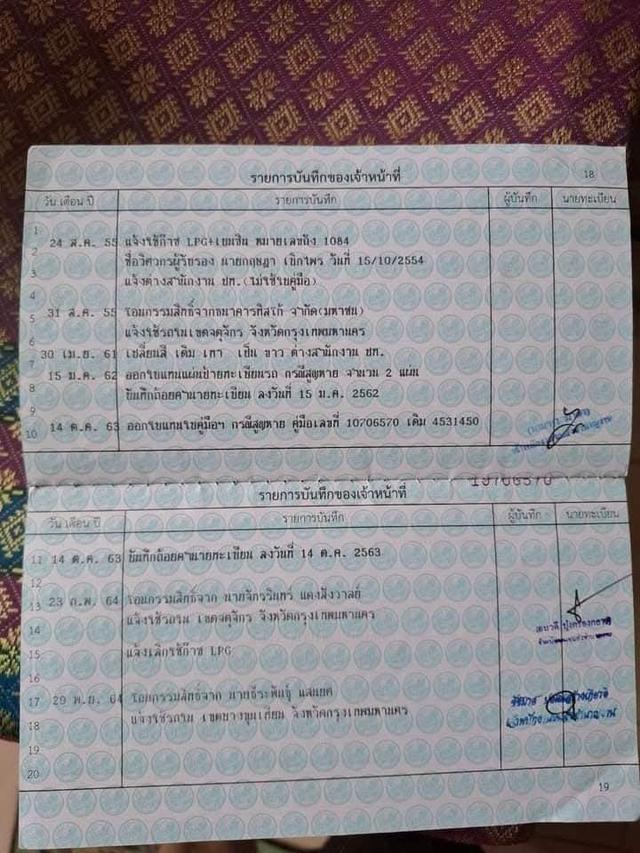 รายการบันทึกของเจ้าหน้าที่
18
วัน เดือน ปี รายการบันทึก ผู้บันทึก นายทะเบียน
1
2 24 ส.ค. 55 แจ้งใช้ก๊าซ LPG+เบนซิน หมายเลขถัง 1084
ชื่อวิศวกรผู้รับรอง นายกฤษฎา เบิกไพร วันที่ 15/10/2554
3 แจ้งต่างสำนักงาน ปท.(ไม่ใช้ใบคู่มือ)
4
5 31 ส.ค. 55 โอนกรรมสิทธิ์จากธนาคารทิสโก้ จำกัด(มหาชน)
6 แจ้งใช้รถณเขตจตุจักร จังหวัดกรุงเทพมหานคร
7 30 เม.ย. 61 เปลี่ยนสี เดิม เทา เป็น ขาว ต่างสำนักงาน ปท.
8 15 ม.ค. 62 ออกใบแทนแผ่นป้ายทะเบียนรถ กรณีสูญหาย จำนวน 2 แผ่น
บันทึกถ้อยคำนายทะเบียน ลงวันที่ 15 ม.ค. 2562
9
10 14 ต.ค. 63 ออกใบแทนใบคู่มือฯ กรณีสูญหาย คู่มือเลขที่ 10706570 เดิม 4531450
10706570
รายการบันทึกของเจ้าหน้าที่
วัน เดือน ปี รายการบันทึก ผู้บันทึก นายทะเบียน
11 14 ต.ค. 63 บันทึกถ้อยคำนายทะเบียน ลงวันที่ 14 ต.ค. 2563
12
13 23 ก.พ. 64 โอนกรรมสิทธิ์จาก นายจักรรินทร์ แดงฝั่งวาลย์
14 แจ้งใช้รถณ เขตจตุจักร จังหวัดกรุงเทพมหานคร
15 แจ้งเลิกใช้ก๊าซ LPG
16
17 29 พ.ย. 64 โอนกรรมสิทธิ์จาก นายธีระพันธุ์ แสนยศ
18 แจ้งใช้รถณ เขตบางขุนเทียน จังหวัดกรุงเทพมหานคร
19
20
19